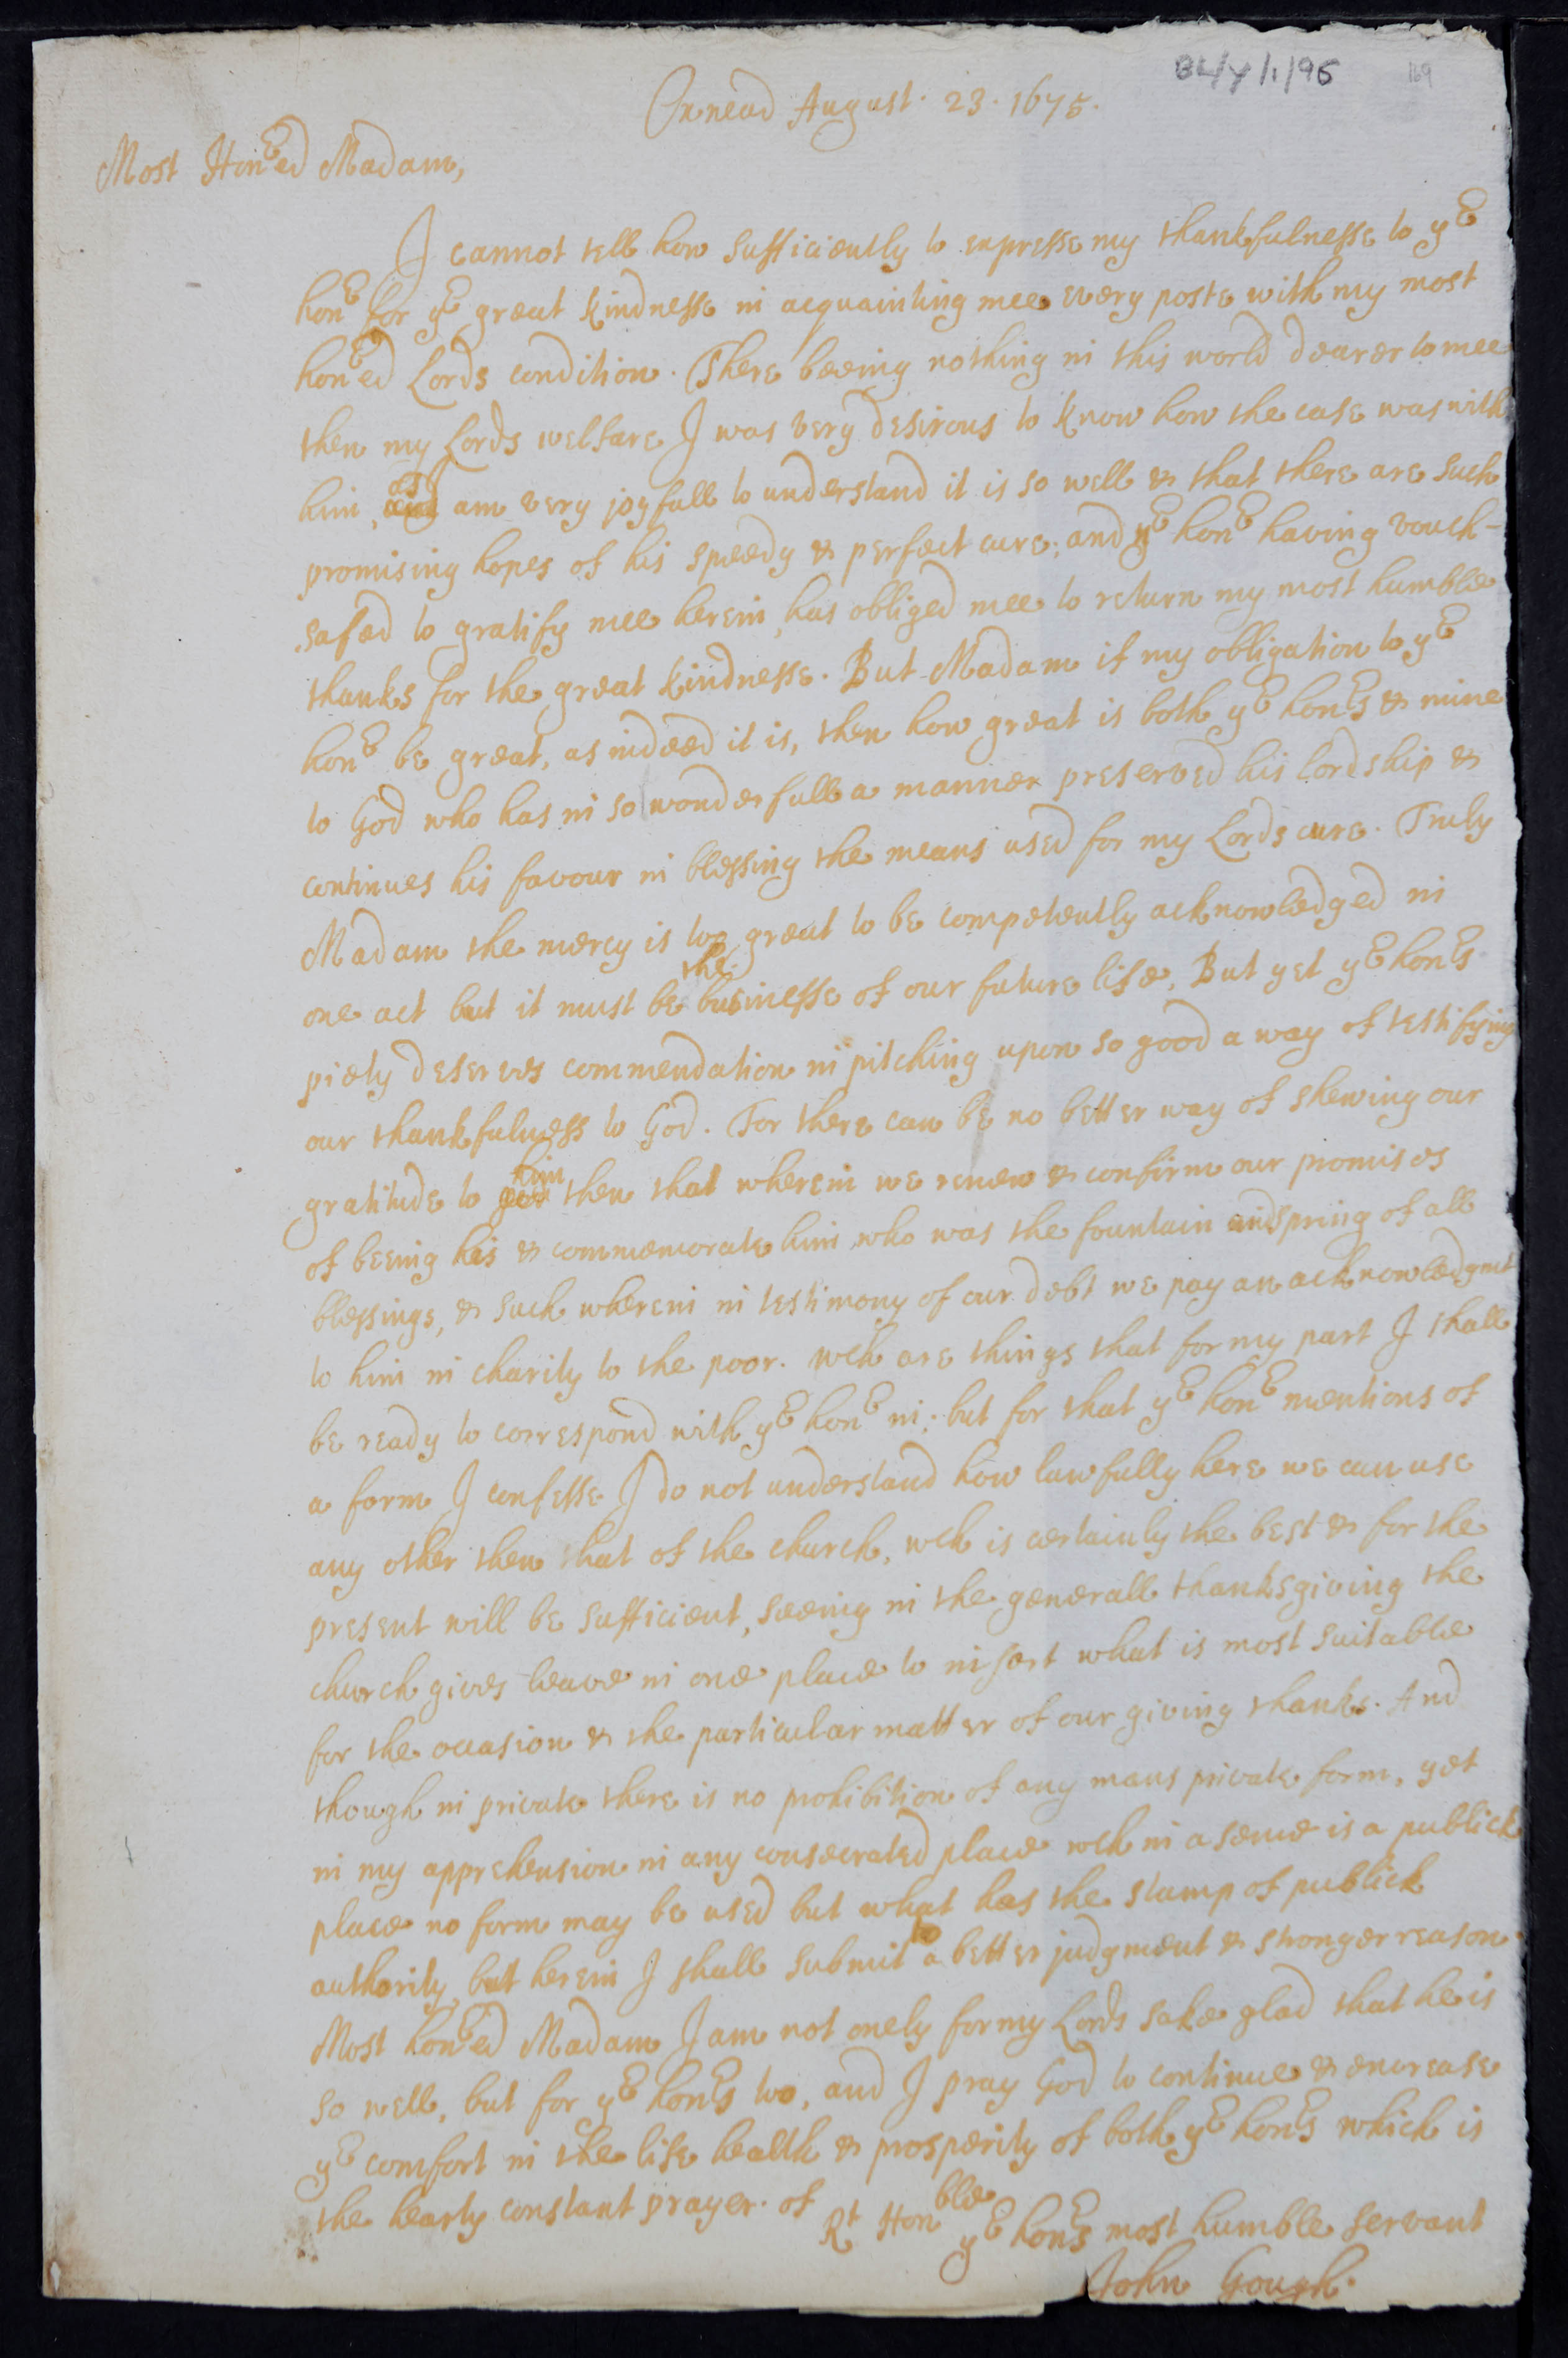 BL/Y/1/96 169
Oxnead August. 23. 1675.
Most Honred Madam,
I cannot tell how sufficiently to expresse my thankfulnesse to yr
honr for yr great kindnesse in acquainting mee every poste with my most
honred Lords condition. There beeing nothing in this world dearer to mee
then my Lords welfare I was very desirous to know how the case was with
him, as am very joyfull to understand it is so well & that there are such
promising hopes of his speedy & perfect cure; and yr honr having vouch-
safed to gratify mee herein, has obliged mee to return my most humble
thanks for the great kindnesse. But Madam if my obligation to yr
honr be great, as indeed it is, then how great is both yr honrs & mine
to God who has in so wonderfull a manner preserved his Lordship &
continues his favour in blessing the means used for my Lords cure. Truly
Madam the mercy is too great to be competently acknowledged in
one act but it must be the businesse of our future life. But yet yr honrs
piety deserves commendation in pitching upon so good a way of testifying
our thankfulness to God. For there can be no better way of shewing our
gratitude to him then that wherein we renew & confirm our promises
of beeing his & commemorate him who was the fountain and spring of all
blessings, & such wherein in testimony of our debt we pay an acknowledgmt
to him in charity to the poor. wch are things that for my part I shall
be ready to correspond with yr honr in; but for that yr honr mentions of
a form I confesse I do not understand how lawfully here we can use
any other then that of the church, wch is certainly the best & for the
present will be sufficient, seeing in the generall thanksgiving the
church gives leave in one place to insert what is most suitable
for the occasion & the particular matter of our giving thanks. And
though in private there is no prohibition of any mans private form, yet
in my apprehension in any consecrated place wch in a sence is a publick
place no form may be used but what has the stamp of publick
authority, but herein I shall submit to a better judgment & stronger reason.
Most honred Madam I am not onely for my Lords sake glad that he is
so well, but for yr honrs too, and I pray God to continue & encrease
yr comfort in the life health & prosperity of both yr honrs which is
the hearty constant prayer. of
Rt Honble
yr honrs most humble servant
John Gough.